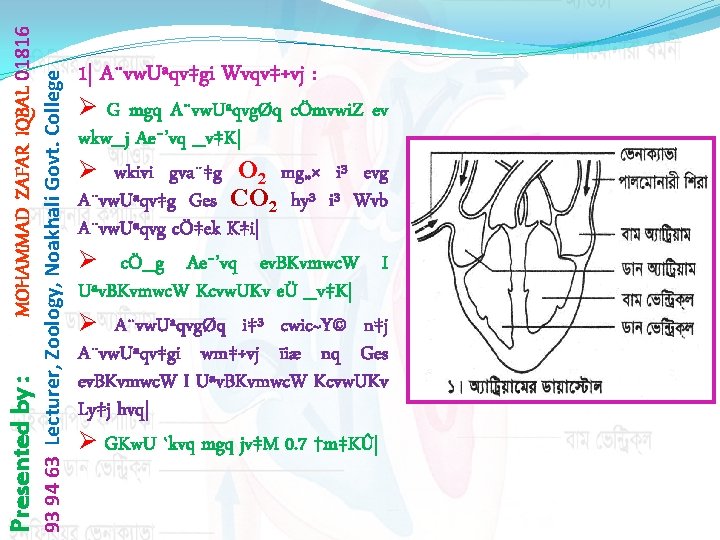 Presented by : MOHAMMAD ZAFAR IQBAL 01816
93 94 63 Lecturer, Zoology, Noakhali Govt. College
1| A¨vw.Uªqv‡gi Wvqv‡÷vj :
➢ G mgq A¨vw.UªqvgØq cÖmvwi.Z ev
wkw_j Ae¯’vq _v‡K|
➢ wkivi gva¨‡g O2 mg„× i³ evg
A¨vw.Uªqv‡g Ges CO2 hy³ i³ Wvb
A¨vw.Uªqvg cÖ‡ek K‡i|
➢ cÖ_g Ae¯’vq ev.BKvmwc.W I
Uªv.BKvmwc.W Kcvw.UKv eÜ _v‡K|
➢ A¨vw.UªqvgØq i‡³ cwic~Y© n‡j
A¨vw.Uªqv‡gi wm‡÷vj ïiæ nq Ges
ev.BKvmwc.W I Uªv.BKvmwc.W Kcvw.UKv
Ly‡j hvq|
➢ GKw.U `kvq mgq jv‡M 0.7 †m‡KÛ|
ভেনাক্যাভা
পালমোনারী শিরা
বাম অ্যাট্রিয়াম
ডান অ্যাট্রিয়াম
বাম ভেন্ট্রিকল
ডান ভেন্ট্রিকল
১। অ্যাট্রিয়ামের ডায়াস্টোল